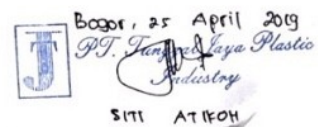 Bogor, 25 April 2019
PT. Tunggal Jaya Plastic
Industry
SITI ATIKOH